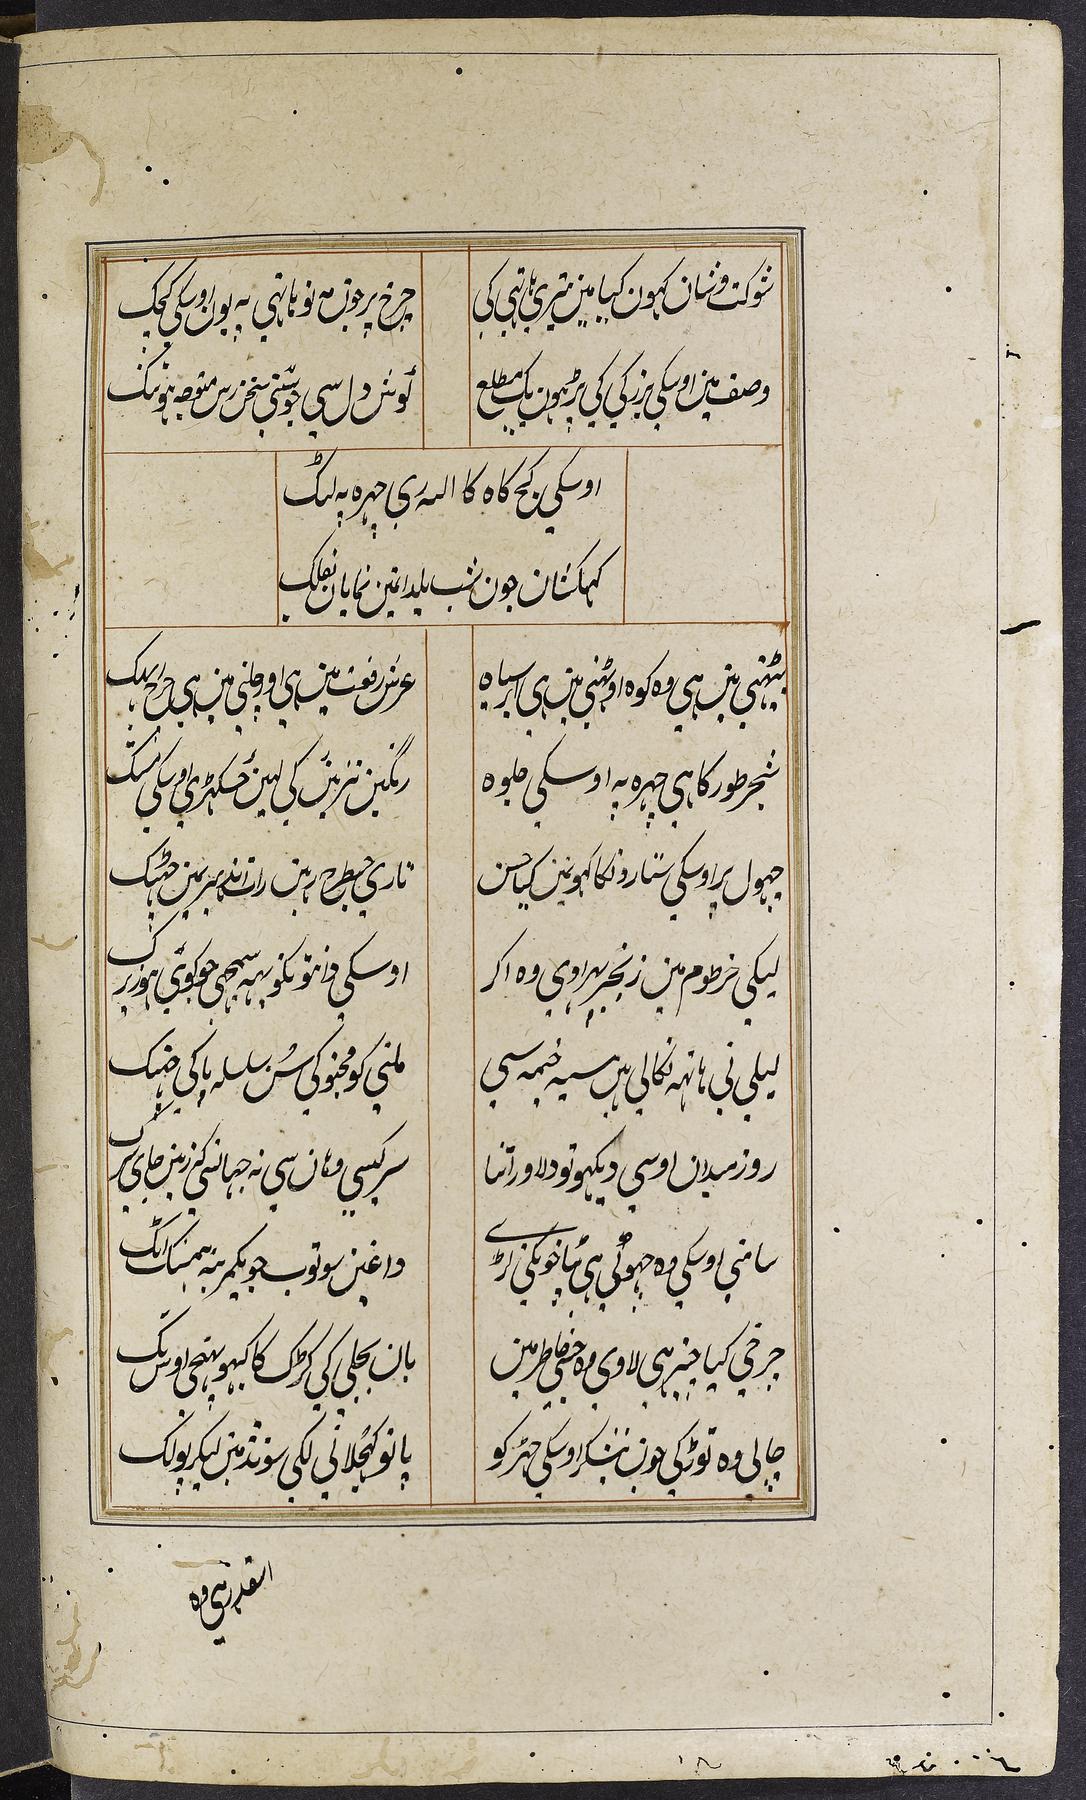 شوکت و شان کہون کیا مین تیری ہاتہی کی
چرخ پر جون مہ نو ہاتہی پہ یون اوسکی کجک
وصف مین اوسکی بزرگی کی پڑہون یک مطلع
گوش دل سی جو سنی سخن رس متوجہ ہو تنک
اوسکی کج گاہ کا اللہ ری چہرہ پہ لٹک
کہکشان جون شب یلدا مین نمایان بفلک
بیٹہنی مین ہی وہ کوہ اوٹہنی مین ہی ابر سیاہ
عرش رفعت مین ہی اور چلنی مین ہی چرخ
شجر طور کا ہی چہرہ پہ اوسکی جلوہ
رنگین کی اوسکی مستک
جہول پر اوسکی ستارونکا کہون مین کیا حسن
تاری جسطرح رہین رات اندہیری مین چہٹک
لیکی خرطوم مین زنجیر پہراوی وہ اگر
اوسکی دانتونکو یہہ سمجہی جو کوئی ہو زیرک
لیلی نی ہاتہہ نکالی ہین سیہ خیمہ سی
ملنی کو مجنو کی سن سلسلہ پا کی جہنک
روز میدان اوسی دیکہو تو دلاور اتنا
سر کسی وہان سی نہ جہانسی کہ زمین جای سرک
سامنی اوسکی وہ چہوٹی ہی پٹاخونکی لڑے
داغین سو توپ جو یکمرتبہ
چرخی کیا چیز ہی لاوی وہ جسی خاطر مین
بان بجلی کی کڑک کا کبہو پہنچی اوس تک
چابی وہ توڑ کی جون نیشکر اوسکی چہڑ کو
پانو کہجلانی لگی سونڈ مین لیکر پولک
اسقدر ہی وہ